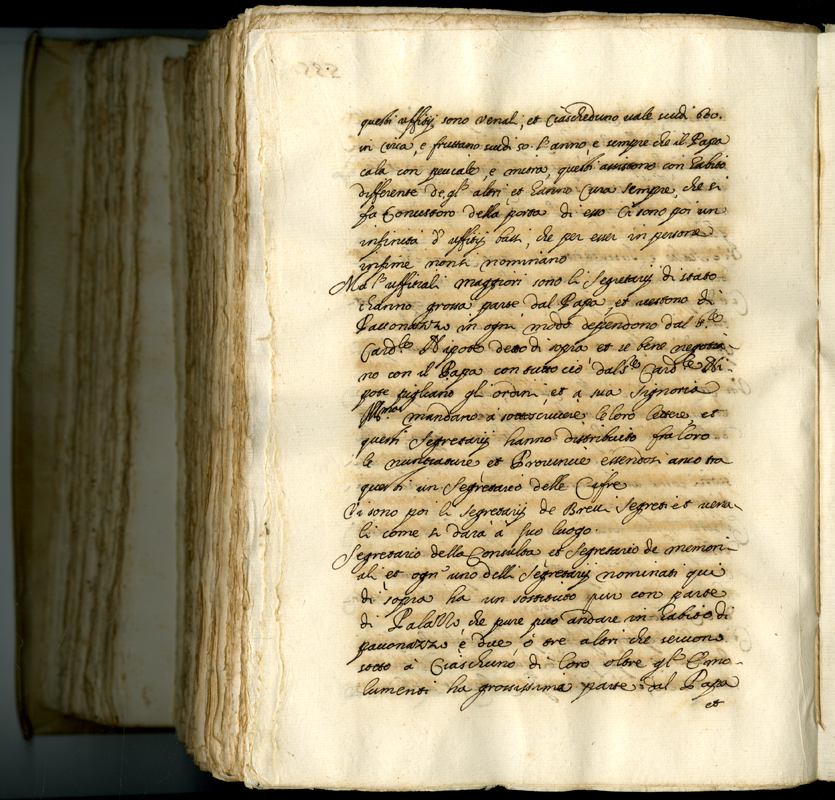 questi uffitij sono venali, et ciascheduno vale scudi 600.
in circa, e fruttano scudi 50. l'anno, e sempre che il Papa
cala con peviale, e mitra, questi assistono con habito
differente de gl'altri et hanno cura sempre, che si
fa Concistoro della porta di esso Ci sono poi un
infinità d'uffitij bassi, che per esser in persone
infime non si nominano
Ma l'uffitiali maggiori sono li Segretarij di stato
c'hanno grossa parte dal Papa, et vestono di
Pauonazzo in ogni modo dependono dal s.re
Card.le Nipote detto di sopra et se bene negotia-
no con il Papa con tutto ciò dal s.re Card.le Ni-
pote pigliano gl'ordini, et a sua Signoria
Ill.ma mandano a sottoscriuere le loro lettere et
questi Segretarij hanno distribuito fra loro
le nunciature et Prouincie essendosi anco tra
questi un Segretario delle Cifre
Vi sono poi li segretarij de Breui segreti et vena-
li come si darà a suo luogo.
Segretario della Consulta et Segretario de memori-
ali et ogn'uno delli Segretarij nominati qui
di sopra ha un sostituto pur con parte
di Palazzo che pure può andare in habito di
pauonazzo e due, ò tre altri che seruono
sotto à Ciaschuno di loro oltre gl'Emo-
lumenti ha grossissima parte dal Papa
et
585